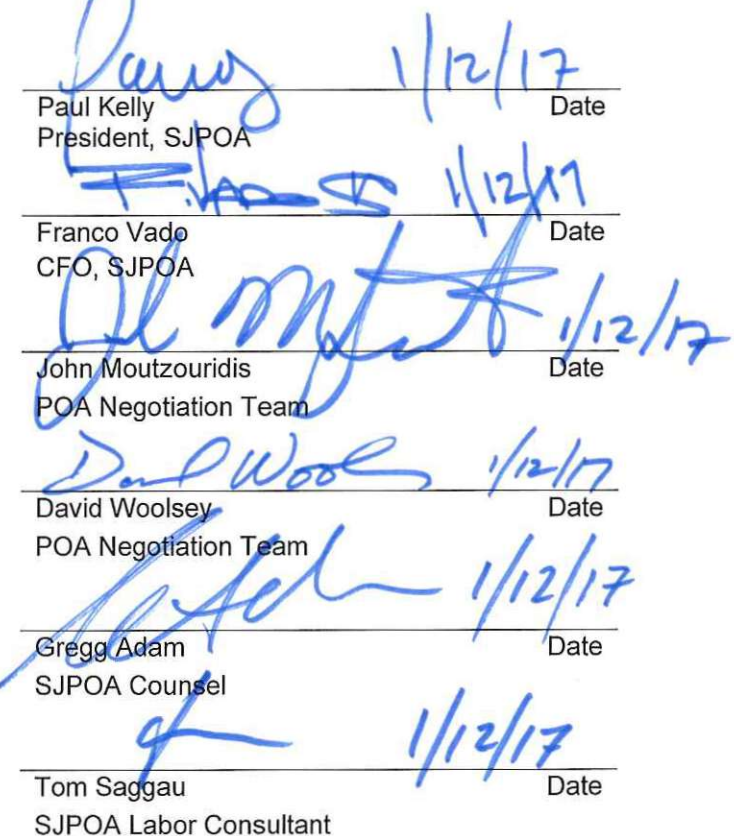 1/12/17
Paul Kelly Date
President, SJPOA
1/12/17
Franco Vado Date
CFO, SJPOA
1/12/17
John Moutzouridis Date
POA Negotiation Team
1/12/17
David Woolsey Date
POA Negotiation Team
1/12/17
Gregg Adam Date
SJPOA Counsel
1/12/17
Tom Saggau Date
SJPOA Labor Consultant